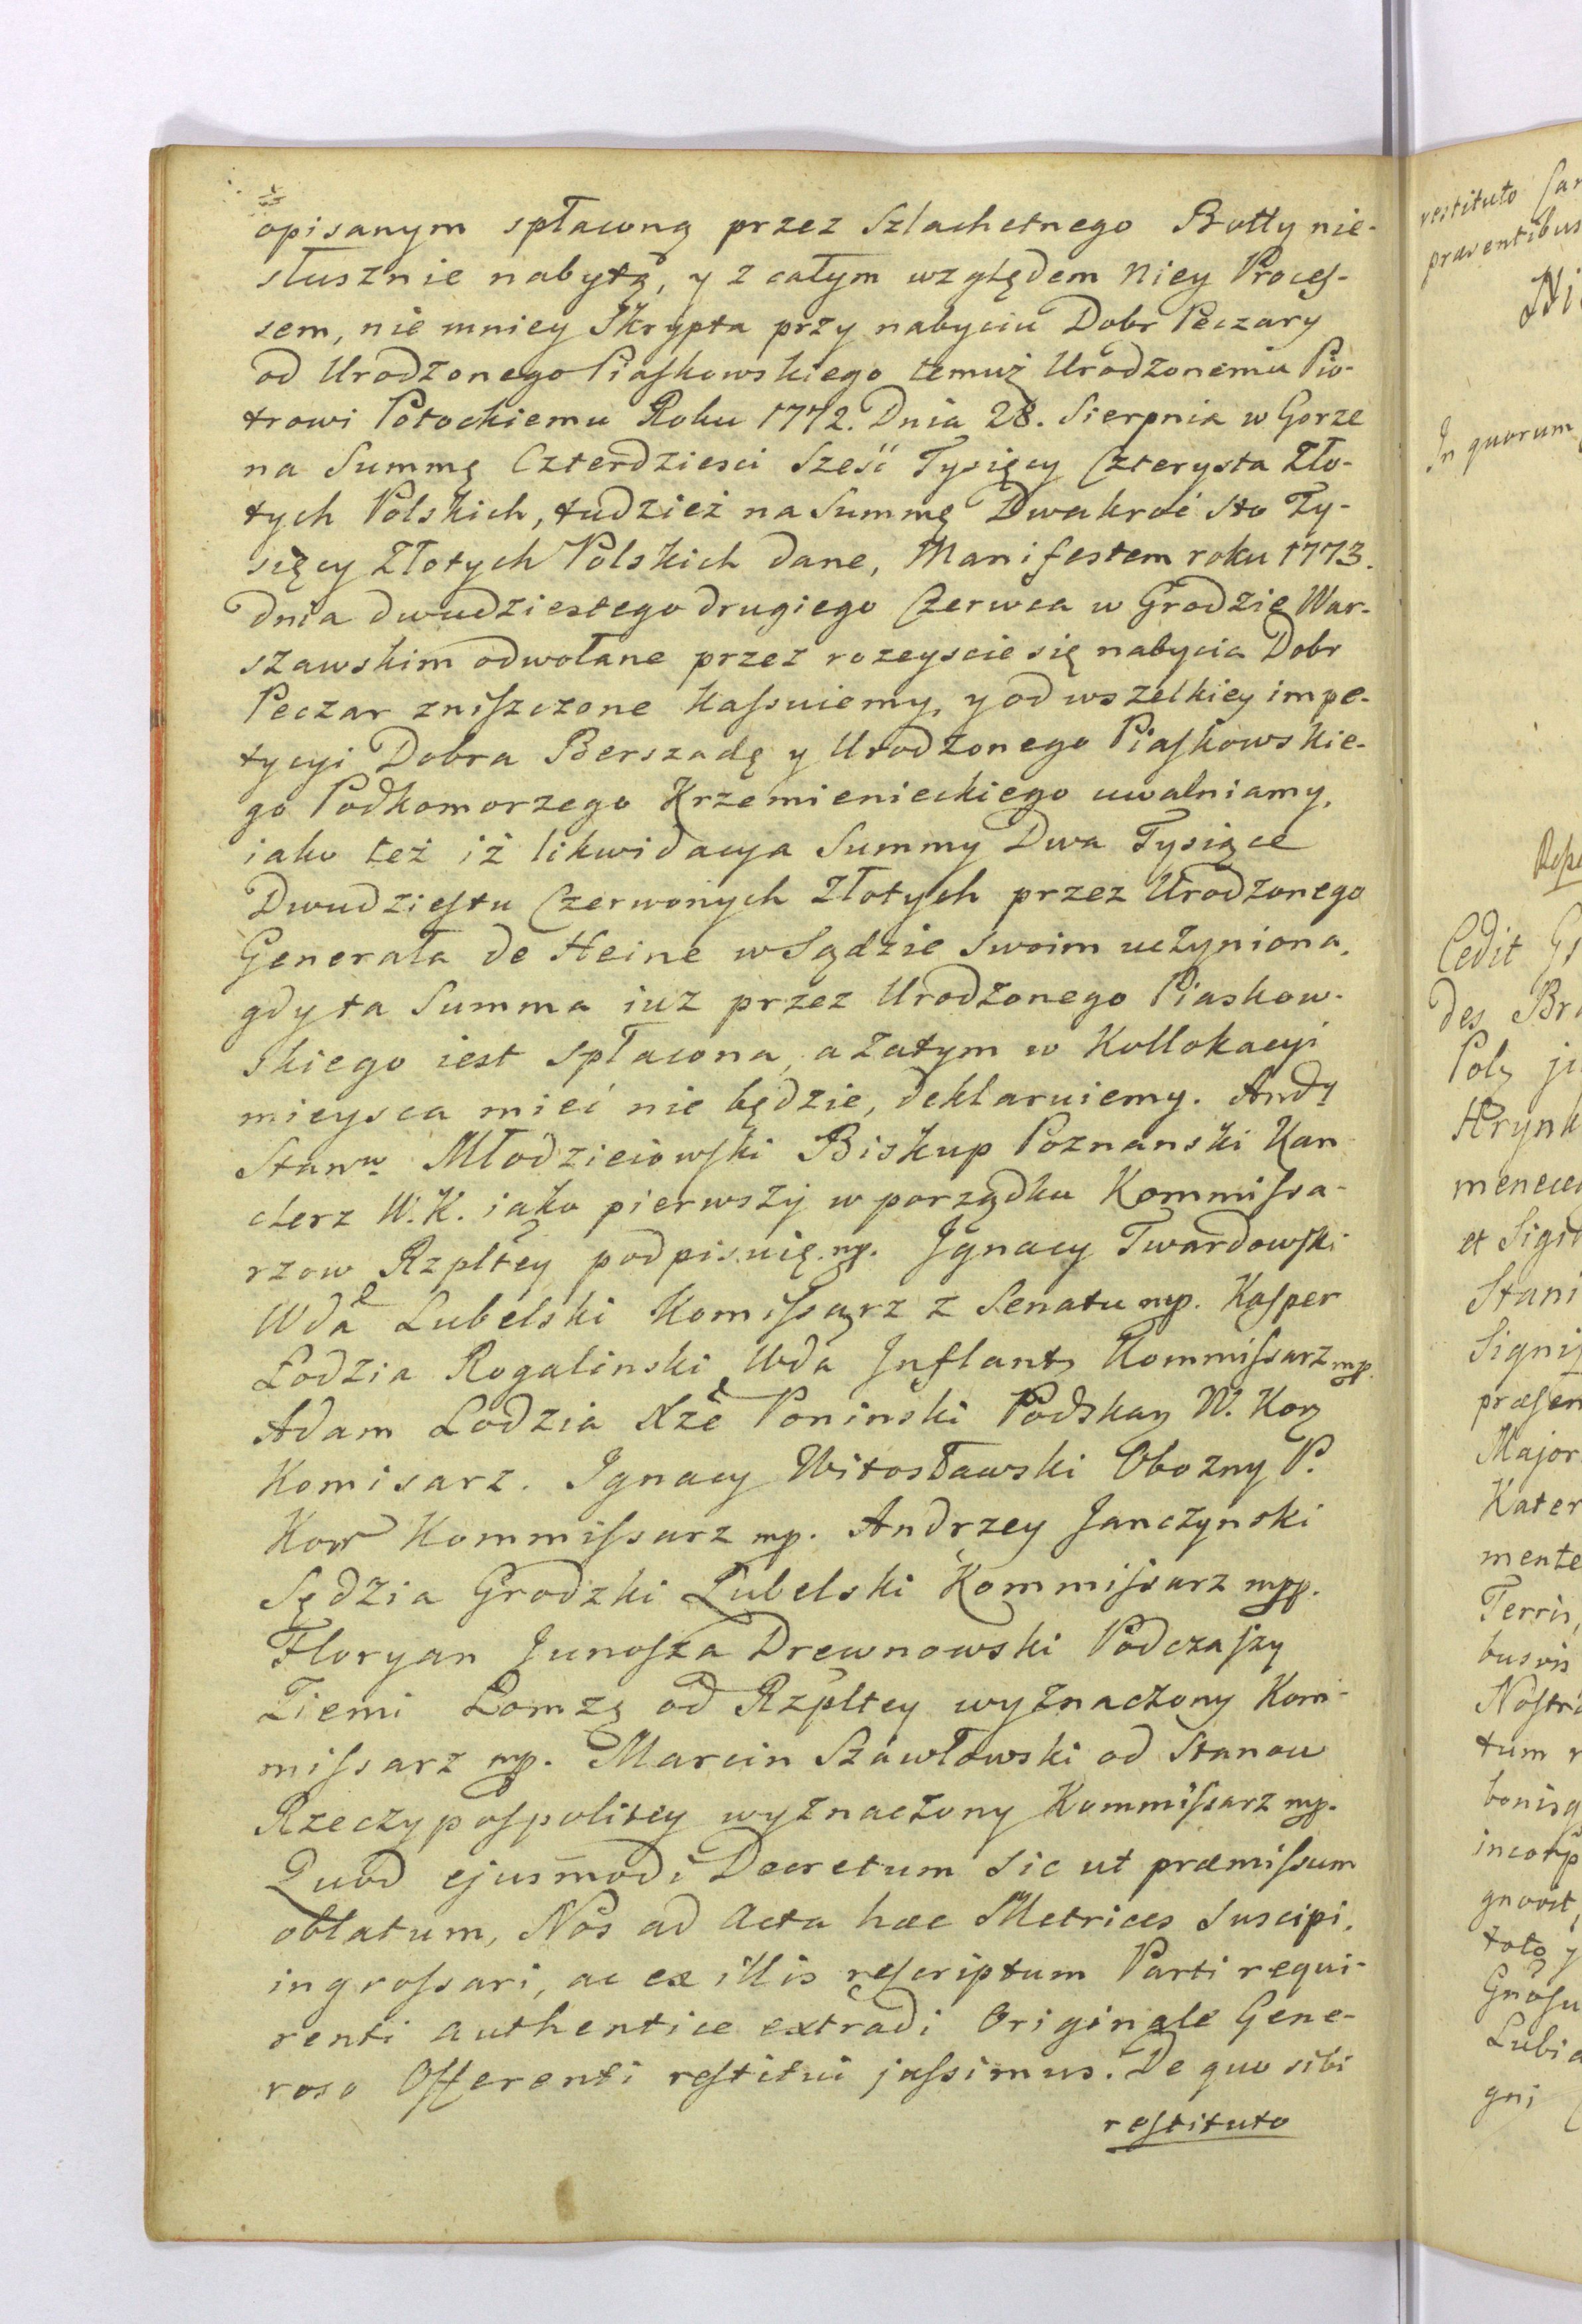 opisanym spłaconą przez Szlachetnego Botty nie-
słusznie nabytą, y z całym względem Niey Proceſ-
sem, nie mniey Skrypta przy nabyciu Dobr Peczary
od Urodzonego Piaſkowskiego temuż Urodzonemu Pio-
trowi Potockiemu Roku 1772. Dnia 28. Sierpnia w Gorze
na Summę Czterdziesci Sześć Tysięcy Czterysta Zło-
tych Polskich, tudzież na Summę Dwakroć sto Ty-
sięcy Złotych Polskich dane, Manifestem roku 1773.
dnia dwudziestego drugiego Czerwca w Grodzie War-
szawskim odwołane przez rozeyscie się nabycia Dobr
Peczar zniſzczone kaſsuiemy, y od wszelkiey impe-
tycyi Dobra Berszadę y Urodzonego Piaſkowskie-
go Podkomorzego Krzemienieckiego uwalniamy,
iako też iż likwidacya Summy Dwa Tysiące
Dwudzieſtu Czerwonych Złotych przez Urodzonego
Generała de Heine w Sądzie swoim uczyniona,
gdy ta Summa iuz przez Urodzonego Piaskow-
skiego iest spłacona, a zatym w Kollokacyi
mieysca mieć nie będzie, deklaruiemy. Andz
Stanw Młodzieiowſki Biskup Poznanski Kan-
clerz W. K. iako pierwszy w porządku Kommiſsa-
rzow Rzpltey podpisuię mp. Ignacy Twardowſki
Wda Lubelski Komiſsarz z Senatu mp. Kaſper
Łodzia Rogalinski Wda Inflantz Kommiſsarz mp.
Adam Lodzia Xże Poninski Podskaz W. Korz
Komisarz. Ignacy Witosławski Obozny P.
Kor Kommiſsarz mp. Andrzey Janczynski
Sędzia Grodzki Lubelski Kommiſsarz mpp.
Floryan Junoſza Drewnowski Podczaſzy
Ziemi Łomzą od Rzpltey wyznaczony Kom-
miſsarz mp. Marcin Szawłowski od Stanow
Rzeczypoſpolitey wyznaczony Kommiſsarz mp.
Quod ejusmodi Decretum sic ut præmiſsum
oblatum, Nos ad Acta hæc Metrices Suscipi,
ingroſsari, ac ex illis reſcriptum Parti requi-
renti authentice extradi Originale Gene-
roso Offerenti reſtitui jaſsimus. De quo sibi
reſtituto
restituto
In quorum
Cedit
des
Polz
Hrynk
menecen
et
Stani
præſen
Major
Kater
mente
Terris,
busvis
Noſtra
tum
gnovit,